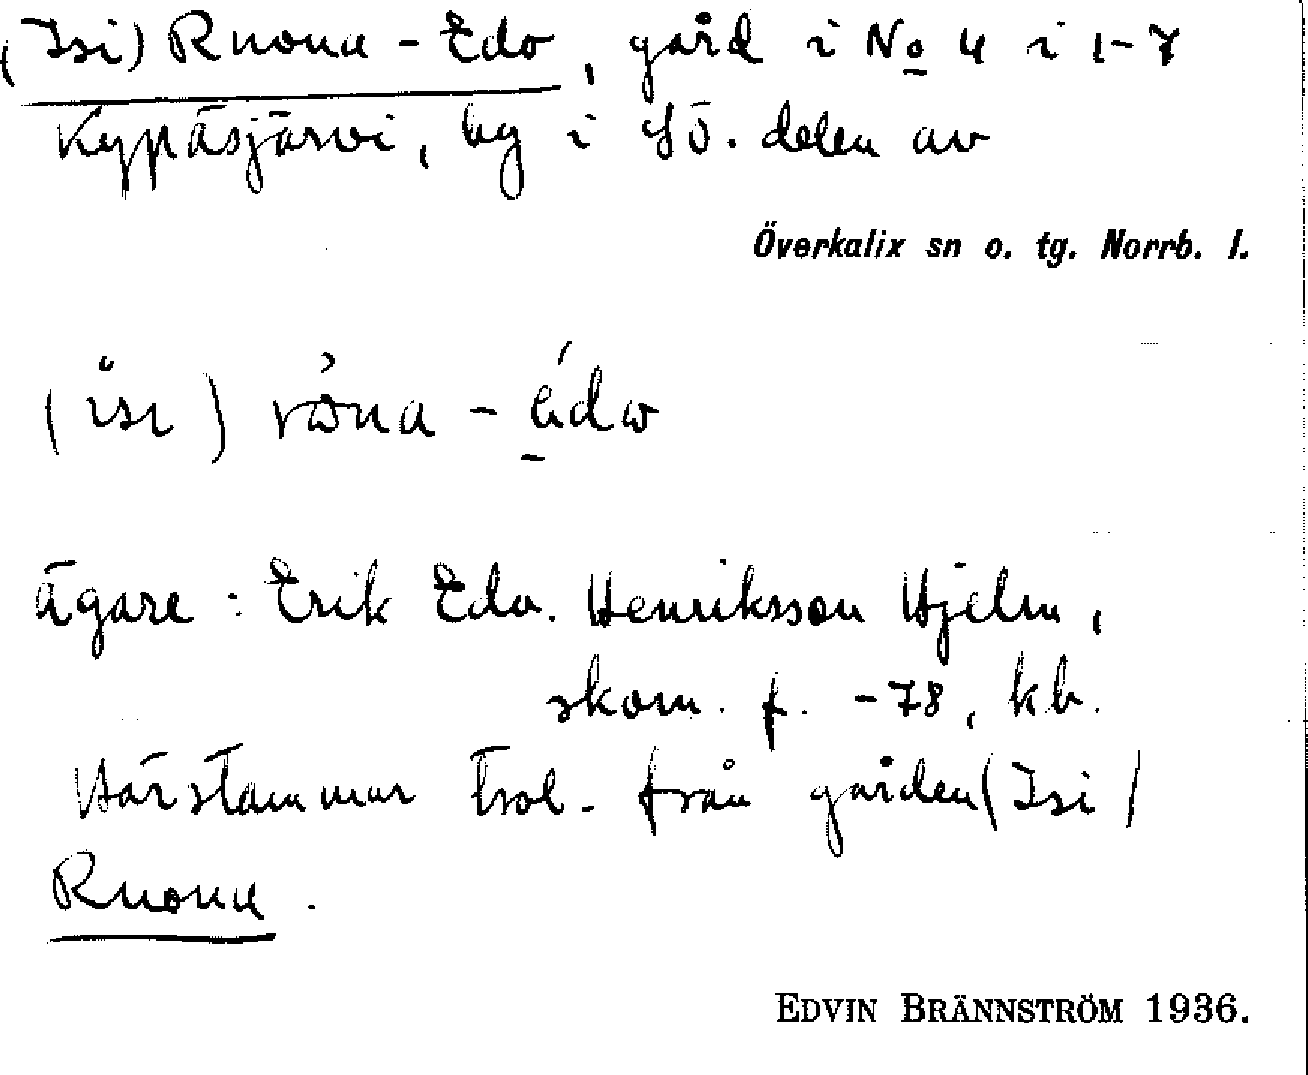 (Isi) Ruona-Edv, gård i No 4 i 1-7
Kypäsjärvi, by i SÖ. delen av
Överkalix sn o. tg. Norrb. l.
ägare: Erik Edv. Henriksson Hjelm,
skom. f. -78, kb.
Härstammar trol. från gården (Isi)
Ruona.
EDVIN BRÄNNSTRÖM 1936.